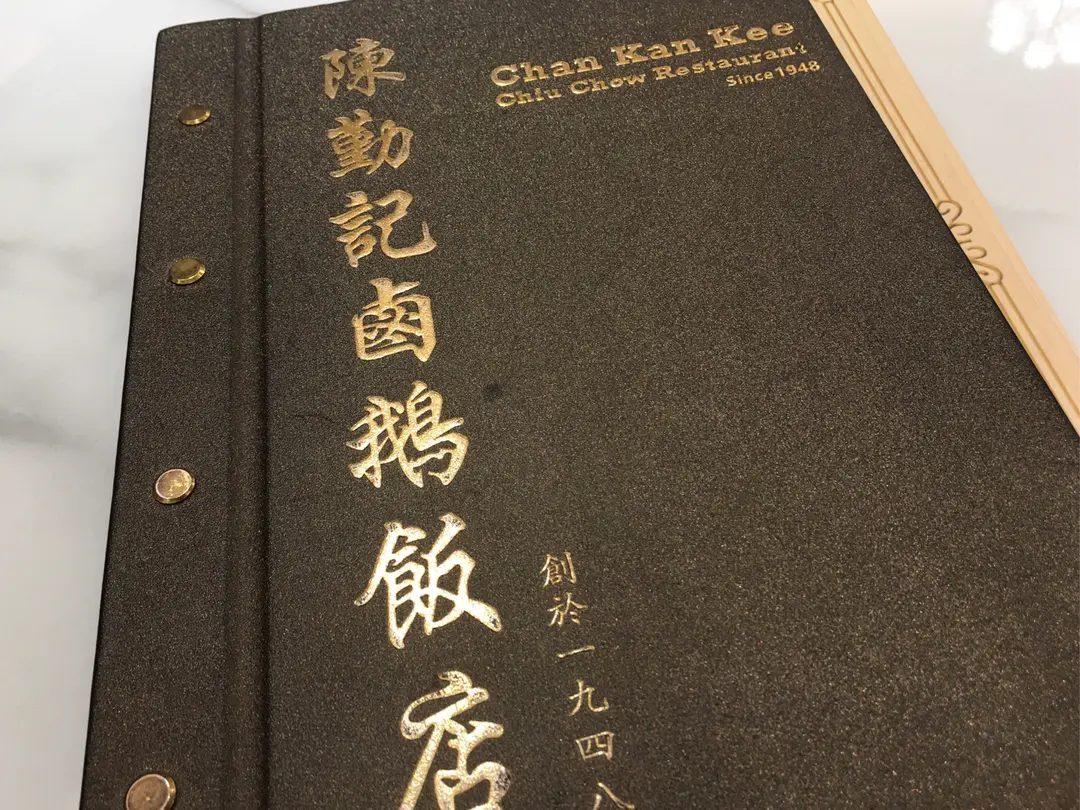 陳勤記鹵鵝飯店
Chan Kan Kee
Chiu Chow Restaurant
Since 1948
創於一九四八